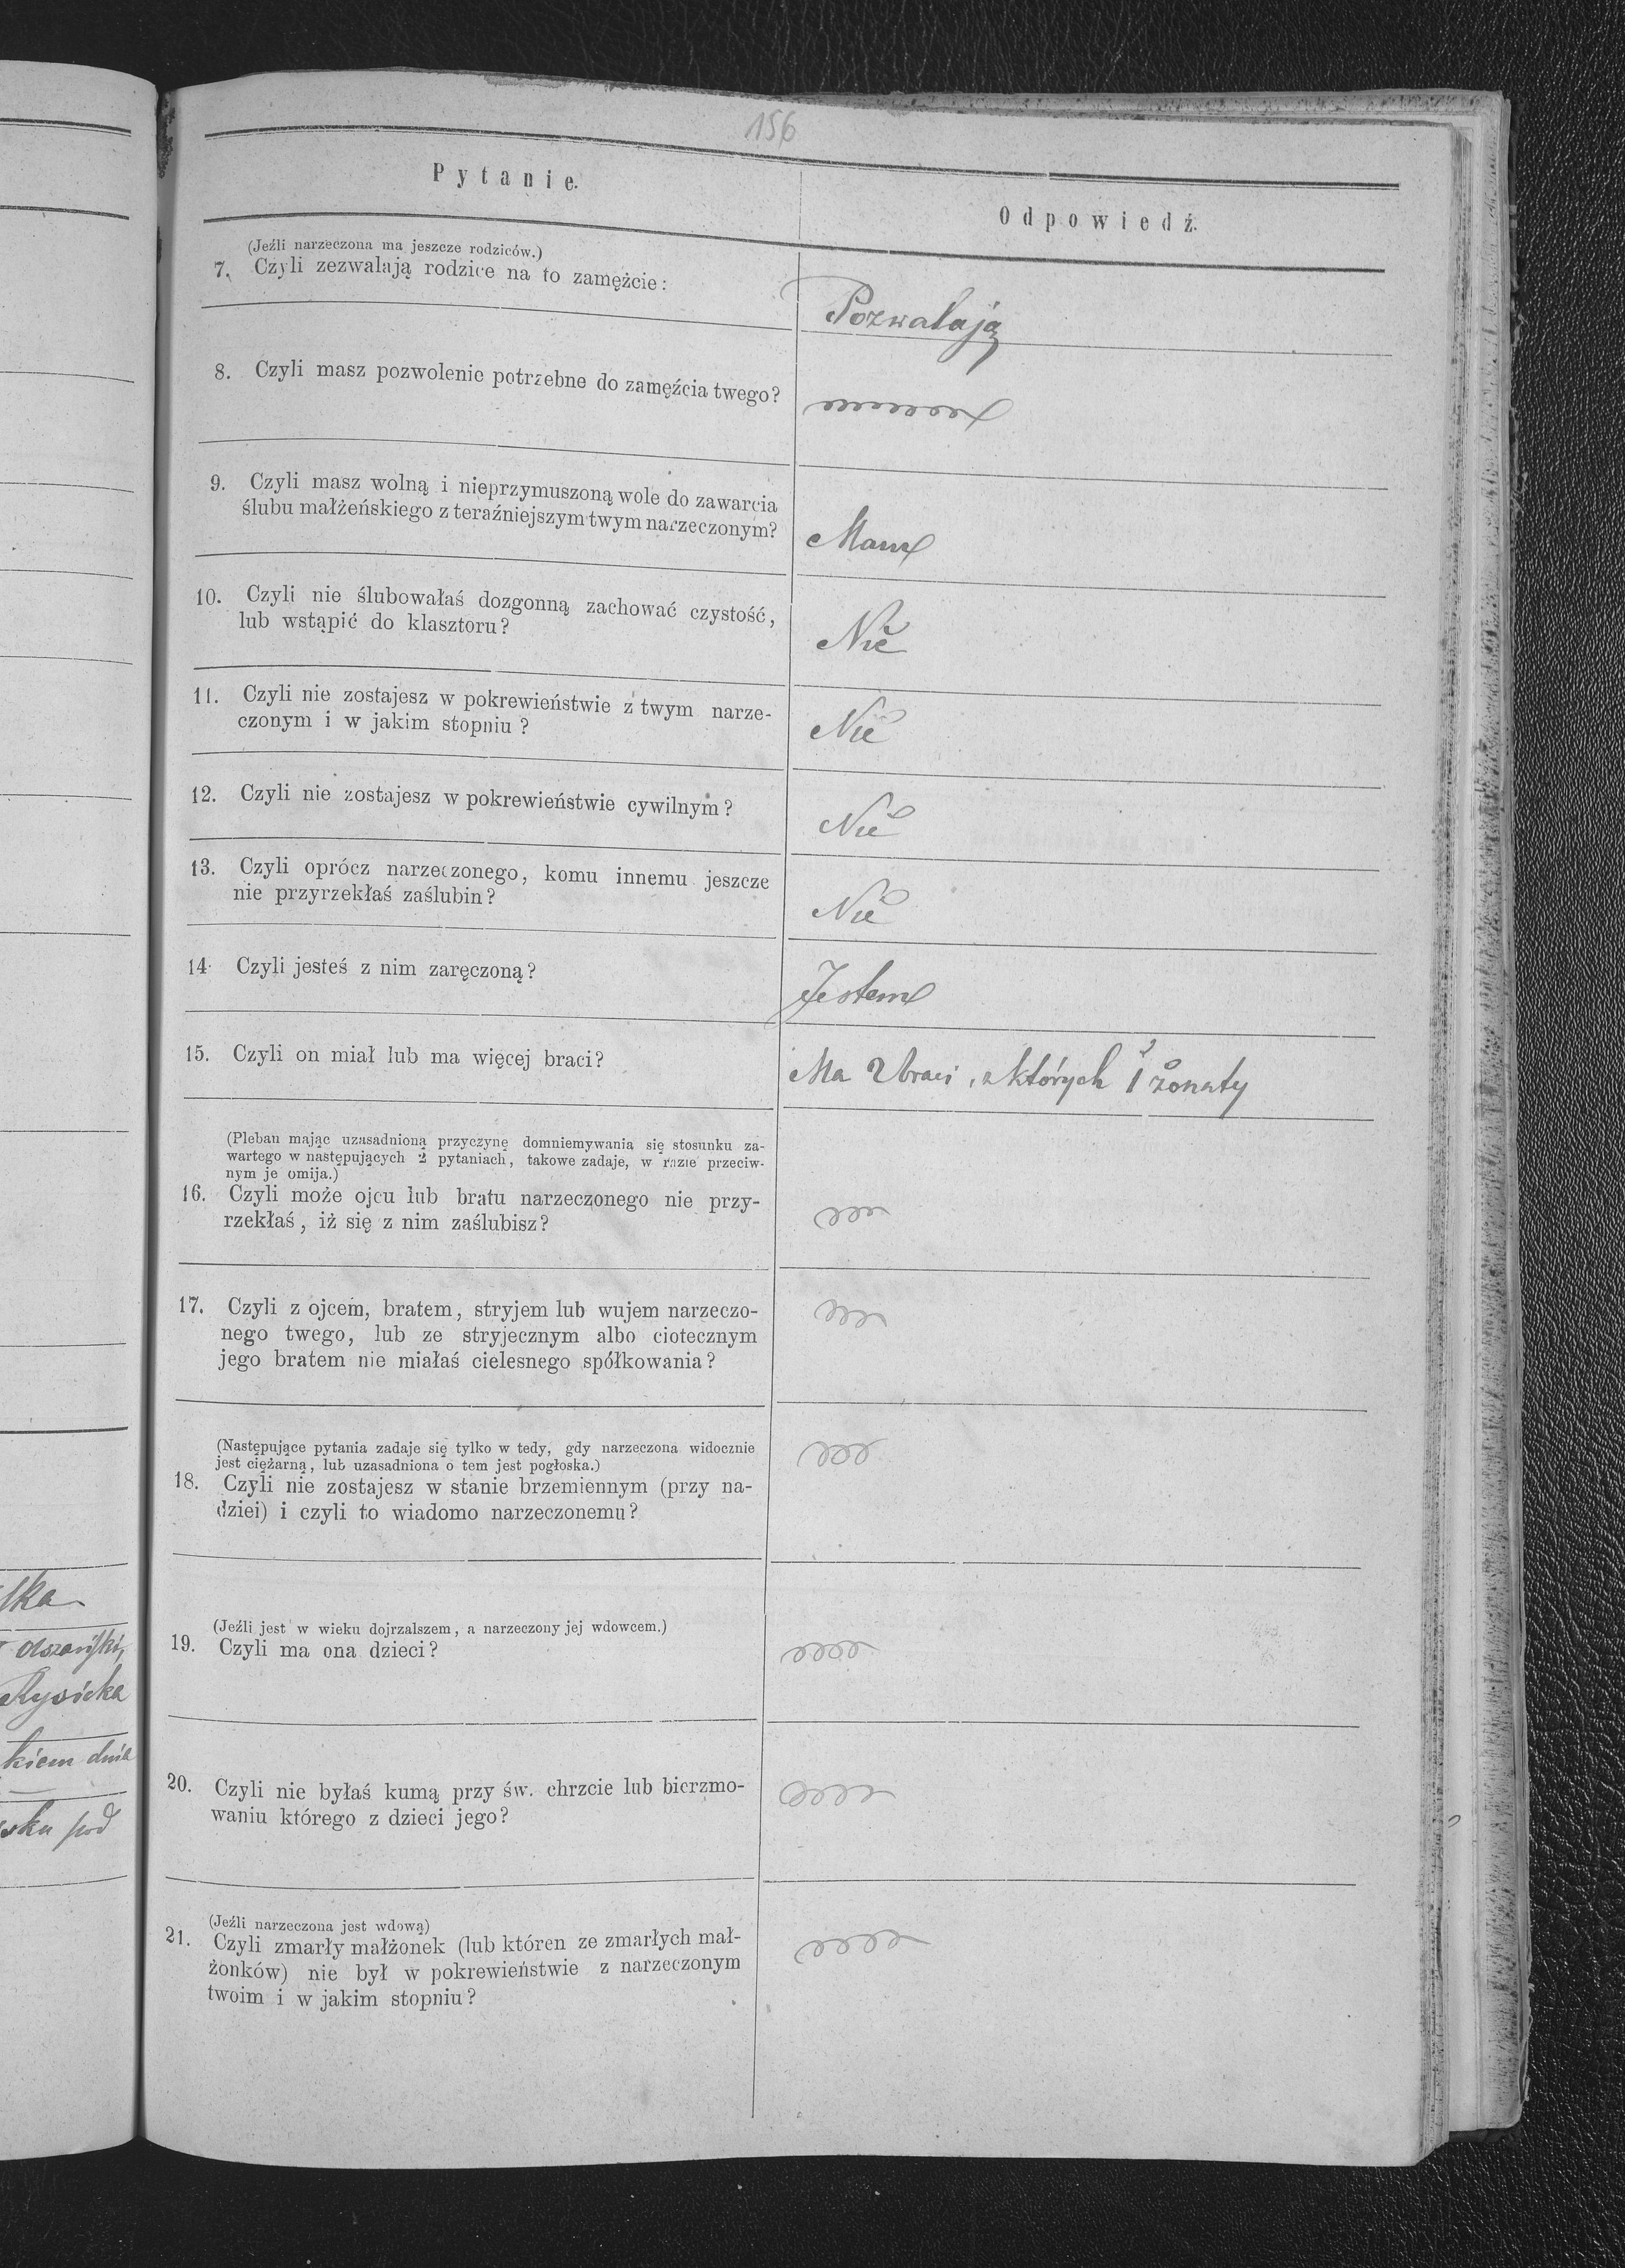 156
Pytanie.
Odpowiedź.
(Jeźli narzeczona ma jeszcze rodziców.)
7. Czyli zezwalają rodzice na to zamężcie:
Pozwalają
8. Czyli masz pozwolenie potrzebne do zamęźcia twego?
9. Czyli masz wolną i nieprzymuszoną wole do zawarcia
ślubu małżeńskiego z teraźniejszym twym narzeczonym?
Mam
10. Czyli nie ślubowałaś dozgonną zachować czystość,
lub wstąpić do klasztoru?
Nie
11. Czyli nie zostajesz w pokrewieństwie z twym narze-
czonym i w jakim stopniu?
Nie
12. Czyli nie zostajesz w pokrewieństwie cywilnym?
Nie
13. Czyli oprócz narzeczonego, komu innemu jeszcze
nie przyrzekłaś zaślubin?
Nie
14. Czyli jesteś z nim zaręczoną?
Jestem
15. Czyli on miał lub ma więcej braci?
Ma 2 braci, z których 1 żonaty
(Pleban mając uzasadnioną przyczynę domniemywania się stosunku za-
wartego w następujących 2 pytaniach, takowe zadaje, w razie przeciw-
nym je omija.)
16. Czyli może ojcu lub bratu narzeczonego nie przy-
rzekłaś, iż się z nim zaślubisz?
17. Czyli z ojcem, bratem, stryjem lub wujem narzeczo-
nego twego, lub ze stryjecznym albo ciotecznym
jego bratem nie miałaś cielesnego spółkowania?
(Następujące pytania zadaje się tylko w tedy, gdy narzeczona widocznie
jest ciężarną, lub uzasadniona o tem jest pogłoska.)
18. Czyli nie zostajesz w stanie brzemiennym (przy na-
dziei) i czyli to wiadomo narzeczonemu?
(Jeźli jest w wieku dojrzalszem, a narzeczony jej wdowcem.)
19. Czyli ma ona dzieci?
20. Czyli nie byłaś kumą przy św. chrzcie lub bierzmo-
waniu którego z dzieci jego?
(Jeźli narzeczona jest wdową)
21. Czyli zmarły małżonek (lub któren ze zmarłych mał-
żonków) nie był w pokrewieństwie z narzeczonym
twoim i w jakim stopniu?
ska
Rysicka
kiem dnia
sku pod